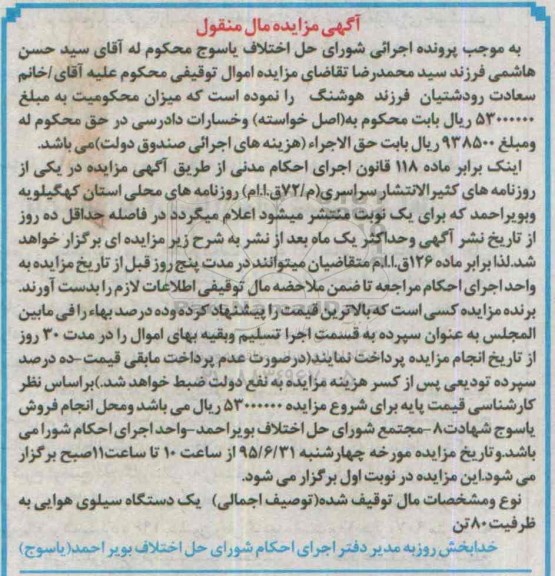 آگهی مزایده مال منقول
به موجب پرونده اجرائی شورای حل اختلاف یاسوج محکوم له آقای سید حسن
هاشمی فرزند سید محمدرضا تقاضای مزایده اموال توقیفی محکوم علیه آقای/خانم
سعادت رودشتیان فرزند هوشنگ را نموده است که میزان محکومیت به مبلغ
۵۳۰۰۰۰۰۰ ریال بابت محکوم به(اصل خواسته) وخسارات دادرسی در حق محکوم له
ومبلغ ۹۳۸۵۰۰ ریال بابت حق الاجراء (هزینه های اجرائی صندوق دولت)می باشد.
اینک برابر ماده ۱۱۸ قانون اجرای احکام مدنی از طریق آگهی مزایده در یکی از
روزنامه های کثیرالانتشار سراسری(م/۷۲ق.ا.ام) روزنامه های محلی استان کهگیلویه
وبویراحمد که برای یک نوبت منتشر میشود اعلام میگردد در فاصله حداقل ده روز
از تاریخ نشر آگهی وحداکثر یک ماه بعد از نشر به شرح زیر مزایده ای برگزار خواهد
شد.لذا برابر ماده ۱۲۶ق.ا.ا.م متقاضیان میتوانند در مدت پنج روز قبل از تاریخ مزایده به
واحد اجرای احکام مراجعه تا ضمن ملاحضه مال توقیفی اطلاعات لازم را بدست آورند.
برنده مزایده کسی است که بالاترین قیمت را پیشنهاد کرده وده درصد بهاء را فی مابین
المجلس به عنوان سپرده به قسمت اجرا تسلیم وبقیه بهای اموال را در مدت ۳۰ روز
از تاریخ انجام مزایده پرداخت نمایند(درصورت عدم پرداخت مابقی قیمت-ده درصد
سپرده تودیعی پس از کسر هزینه مزایده به نفع دولت ضبط خواهد شد.)براساس نظر
کارشناسی قیمت پایه برای شروع مزایده ۵۳۰۰۰۰۰۰ ریال می باشد ومحل انجام فروش
یاسوج شهادت۸-مجتمع شورای حل اختلاف بویراحمد-واحد اجرای احکام شورا می
باشد.و تاریخ مزایده مورخه چهارشنبه ۹۵/۶/۳۱ از ساعت ۱۰ تا ساعت۱۱صبح برگزار
می شود.این مزایده در نوبت اول برگزار می شود.
نوع ومشخصات مال توقیف شده(توصیف اجمالی) یک دستگاه سیلوی هوایی به
ظرفیت۸۰تن
خدابخش روزبه مدیر دفتر اجرای احکام شورای حل اختلاف بویر احمد(یاسوج)